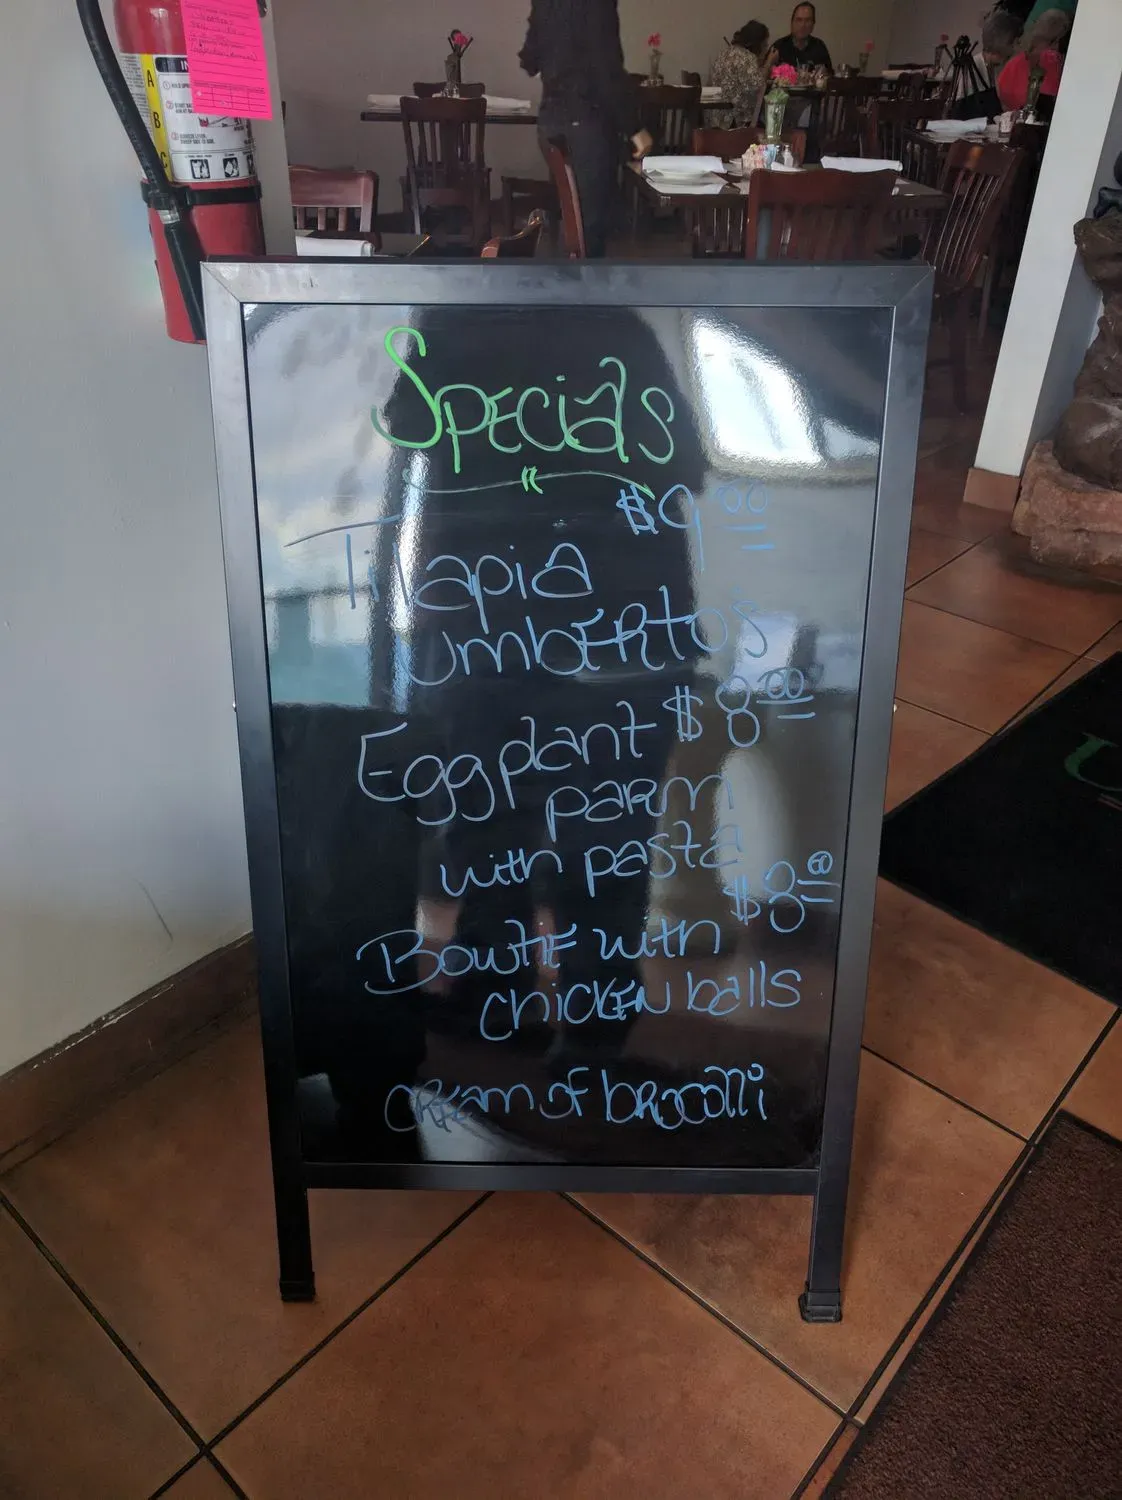 Specials
$9.00
Tilapia
Umbertos
$8.00
Eggplant
parm
with pasta
$8.00
Bowtie with
chicken balls
cream of brocolli
A
B
C